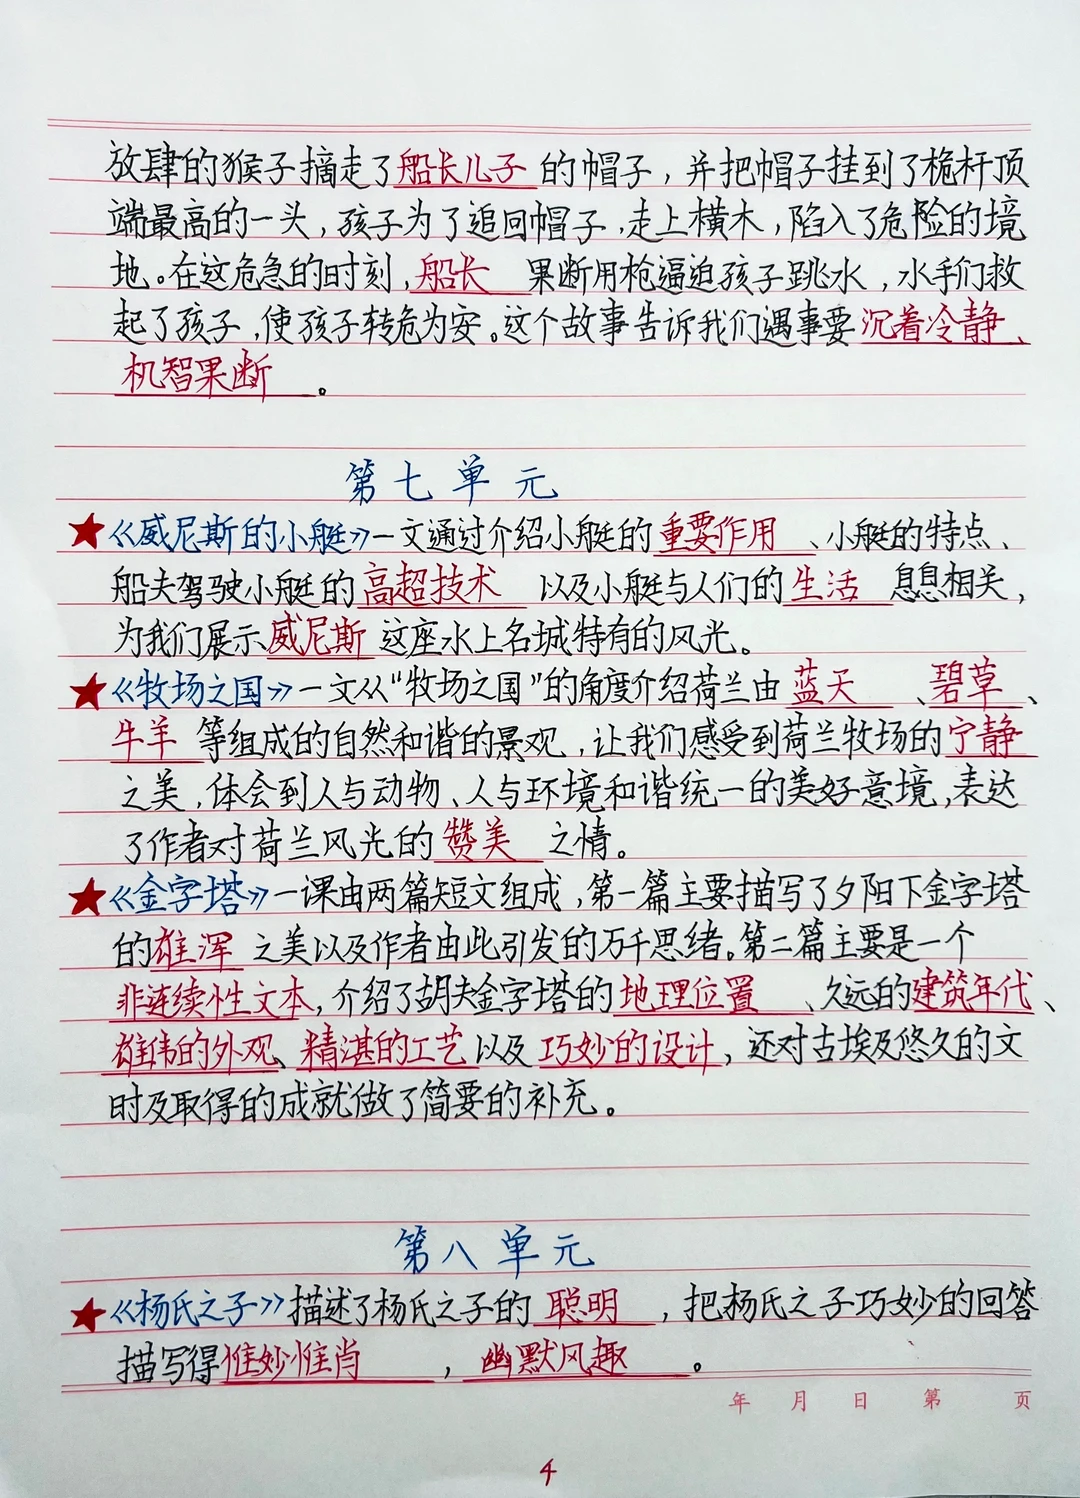 放肆的猴子摘走了船长儿子的帽子,并把帽子挂到了桅杆顶
端最高的一头,孩子为了追回帽子,走上横木,陷入了危险的境
地。在这危急的时刻,船长果断用枪逼迫孩子跳水,水手们救
起了孩子,使孩子转危为安。这个故事告诉我们遇事要沉着冷静、
机智果断。
第七单元
★《威尼斯的小艇》一文通过介绍小艇的重要作用、小艇的特点、
船夫驾驶小艇的高超技术以及小艇与人们的生活息息相关,
为我们展示威尼斯这座水上名城特有的风光。
★《牧场之国》一文从“牧场之国”的角度介绍荷兰由蓝天、碧草、
牛羊等组成的自然和谐的景观,让我们感受到荷兰牧场的宁静
之美,体会到人与动物、人与环境和谐统一的美好意境,表达
了作者对荷兰风光的赞美之情。
★《金字塔》一课由两篇短文组成,第一篇主要描写了夕阳下金字塔
的雄浑之美以及作者由此引发的万千思绪。第二篇主要是一个
非连续性文本,介绍了胡夫金字塔的地理位置、久远的建筑年代、
雄伟的外观、精湛的工艺以及巧妙的设计,还对古埃及悠久的文
时及取得的成就做了简要的补充。
第八单元
★《杨氏之子》描述了杨氏之子的聪明,把杨氏之子巧妙的回答
描写得惟妙惟肖,幽默风趣。
年 月 日 第 页
4